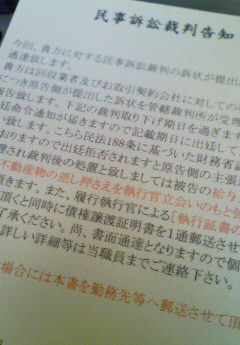 民事訴訟裁判告知
今回、貴方に対する民事訴訟裁判の訴状が提出
通達致します。
貴方は回収業者及びお取引契約会社に対しての
につき原告側が提出した訴状を管轄裁判所が受理
報告致します。下記の裁判取り下げ期日を過ぎます
廷命令通知が届きますので記載期日に出廷して
い致します。こちら民法188条に基づいた財務省
おりますので出廷拒否されますと原告側の主張が
理され裁判後の処置と致しましては被告の給与
不動産物の差し押さえを執行官立会いのもと強
頂きます。また、履行執行官による[執行証書の
頂くと同時に債権譲渡証明書を1通郵送させて
了承ください。尚、書面通達となりますので個
詳しい詳細等は当職員までご連絡下さい。
場合には本書を勤務先等へ郵送させて頂